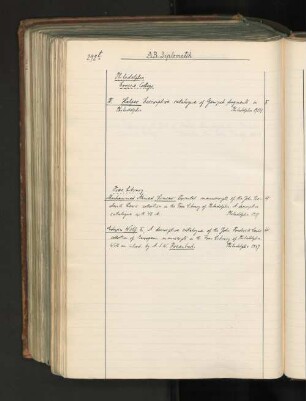 B.B. Diplomatik
Philadelphia
Dropsie College
B Halper Descriptive catalogue of Genizah fragments in
Philadelphia Philadelphia 1924
Free Library
Muhammed Ahmed Simsar Oriental manuscripts of the John Fre-
derick Lewis collection in the Free Library of Philadelphia. A descriptive
catalogue Philadelphia 1937
Edwin Wolf 2. A descriptive catalogue of the John Frederick Lewis
collection of European manuscripts in the Free Library of Philadelphia.
With an introd. by A.S.W. Rosenbach. Philadelphia 1937